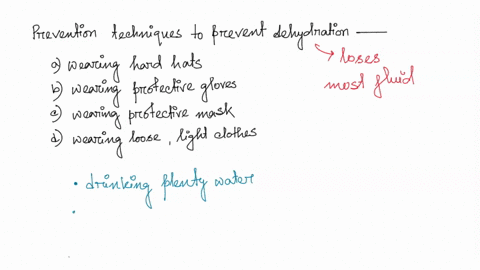 Prevention techniques to prevent dehydration ——
a) wearing hard hats
b) wearing protective gloves
c) wearing protective mask
d) wearing loose, light clothes
loses
most fluid
• drinking plenty water
•